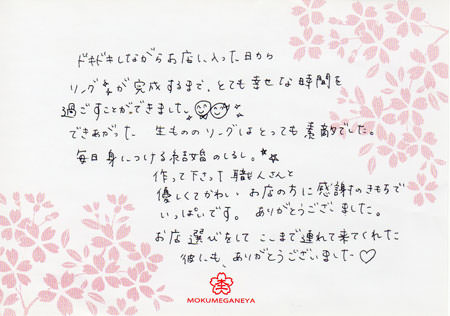 ドキドキしながらお店に入った日から
リングが完成するまで、とても幸せな時間を
過ごすことができました
できあがった 生もののリングはとっても素敵でした。
毎日身につける結婚のしるし。
作って下さった職人さんと
優しくてかわいいお店の方に感謝のきもちで
いっぱいです。ありがとうございました。
お店選びをしてここまで連れて来てくれた
彼にも、ありがとうございました♡
MOKUMEGANEYA